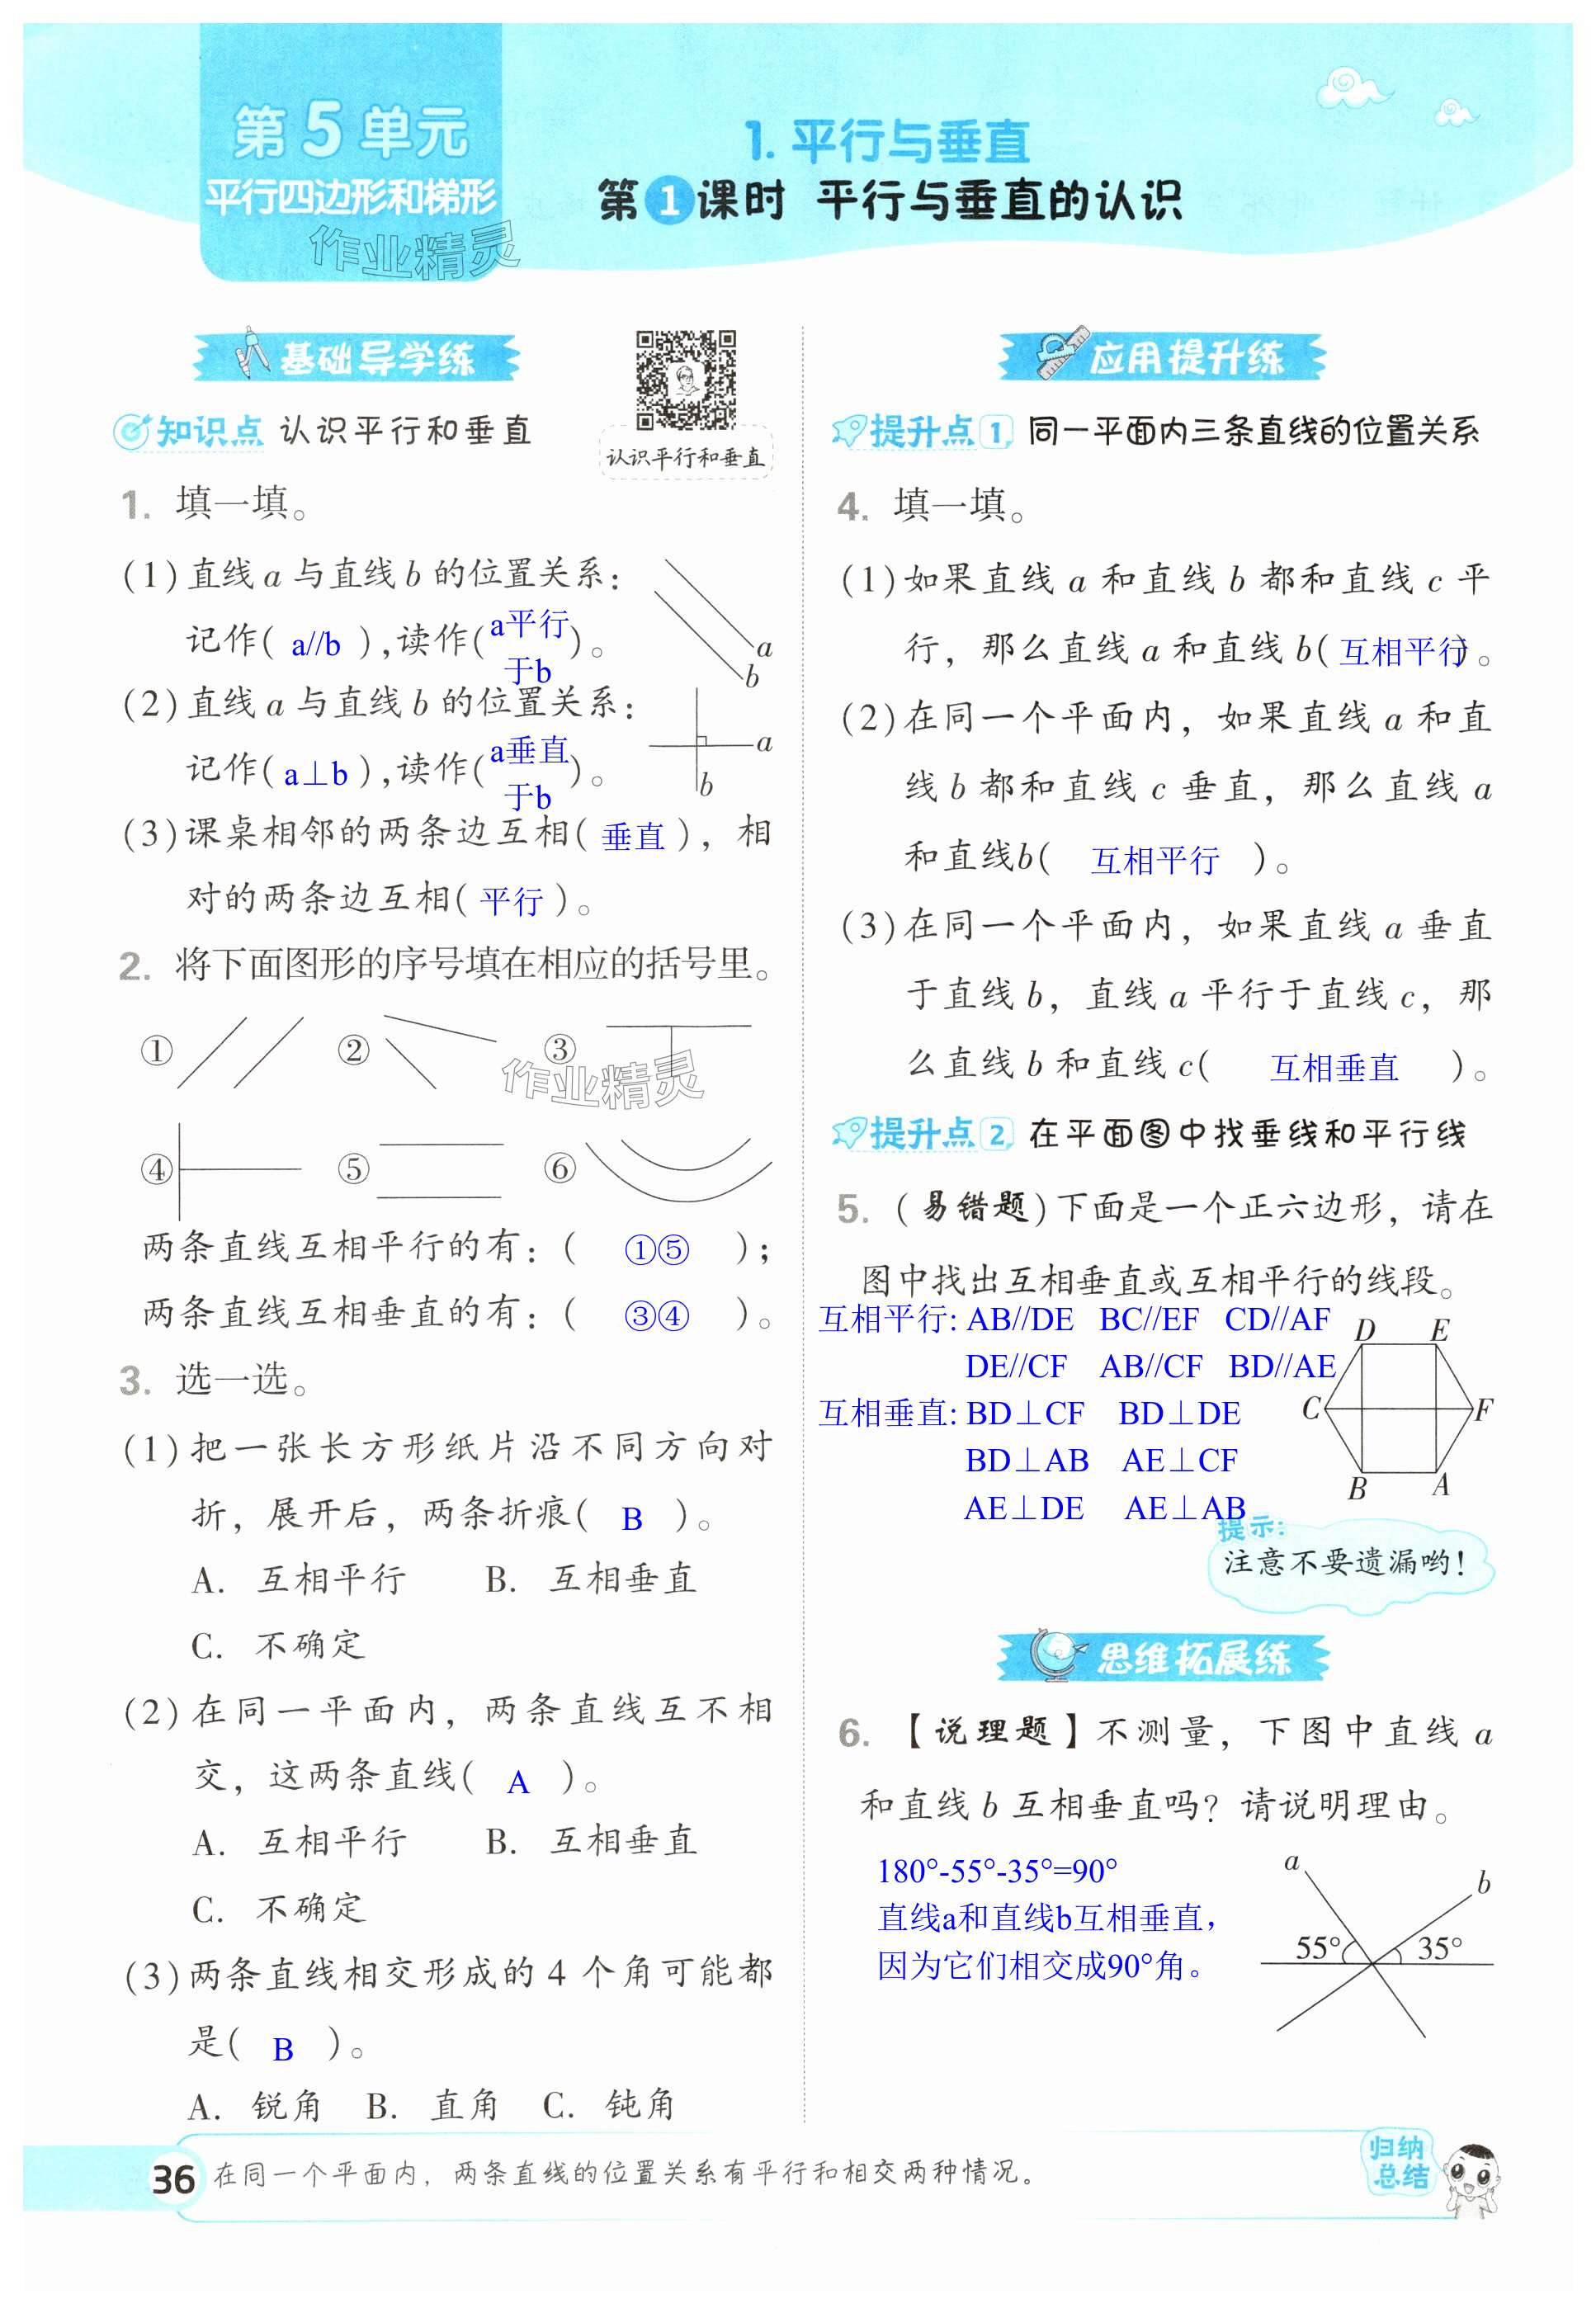 第5单元
平行四边形和梯形
作业精灵
1. 平行与垂直
第1课时 平行与垂直的认识
基础导学练
知识点 认识平行和垂直
认识平行和垂直
1. 填一填。
(1)直线a与直线b的位置关系：
记作( a//b ),读作(a平行于b)。
a
b
(2)直线a与直线b的位置关系：
记作( a⊥b ),读作(a垂直于b)。
a
b
(3)课桌相邻的两条边互相( 垂直 )，相
对的两条边互相( 平行 )。
2. 将下面图形的序号填在相应的括号里。
① ② ③
作业精灵
④ ⑤ ⑥
两条直线互相平行的有：( ①⑤ )；
两条直线互相垂直的有：( ③④ )。
3. 选一选。
(1)把一张长方形纸片沿不同方向对
折，展开后，两条折痕( B )。
A. 互相平行 B. 互相垂直
C. 不确定
(2)在同一平面内，两条直线互不相
交，这两条直线( A )。
A. 互相平行 B. 互相垂直
C. 不确定
(3)两条直线相交形成的4个角可能都
是( B )。
A. 锐角 B. 直角 C. 钝角
应用提升练
提升点1 同一平面内三条直线的位置关系
4. 填一填。
(1)如果直线a和直线b都和直线c平
行，那么直线a和直线b( 互相平行)。
(2)在同一个平面内，如果直线a和直
线b都和直线c垂直，那么直线a
和直线b( 互相平行 )。
(3)在同一个平面内，如果直线a垂直
于直线b，直线a平行于直线c，那
么直线b和直线c( 互相垂直 )。
提升点2 在平面图中找垂线和平行线
5. (易错题)下面是一个正六边形，请在
图中找出互相垂直或互相平行的线段。
互相平行: AB//DE BC//EF CD//AF
DE//CF AB//CF BD//AE
互相垂直: BD⊥CF BD⊥DE
BD⊥AB AE⊥CF
AE⊥DE AE⊥AB
D E
C F
B A
提示：
注意不要遗漏哟！
思维拓展练
6. 【说理题】不测量，下图中直线a
和直线b互相垂直吗？请说明理由。
180°-55°-35°=90°
直线a和直线b互相垂直，
因为它们相交成90°角。
a
b
55° 35°
36 在同一个平面内，两条直线的位置关系有平行和相交两种情况。
归纳
总结